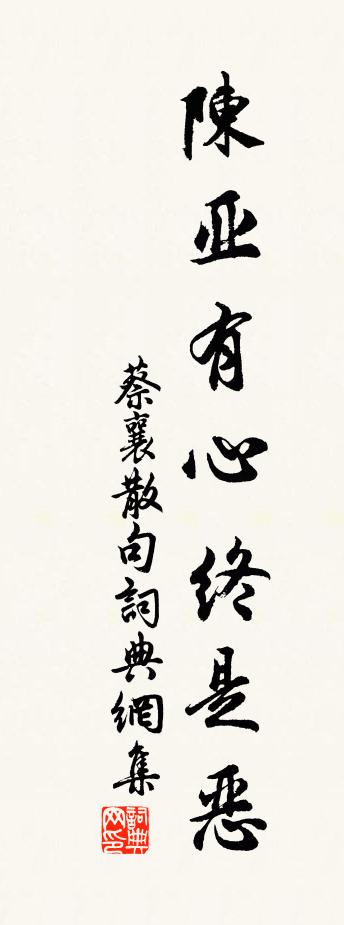 陳亚有心終是惡
蔡襄散句詞典網集
詞典網印